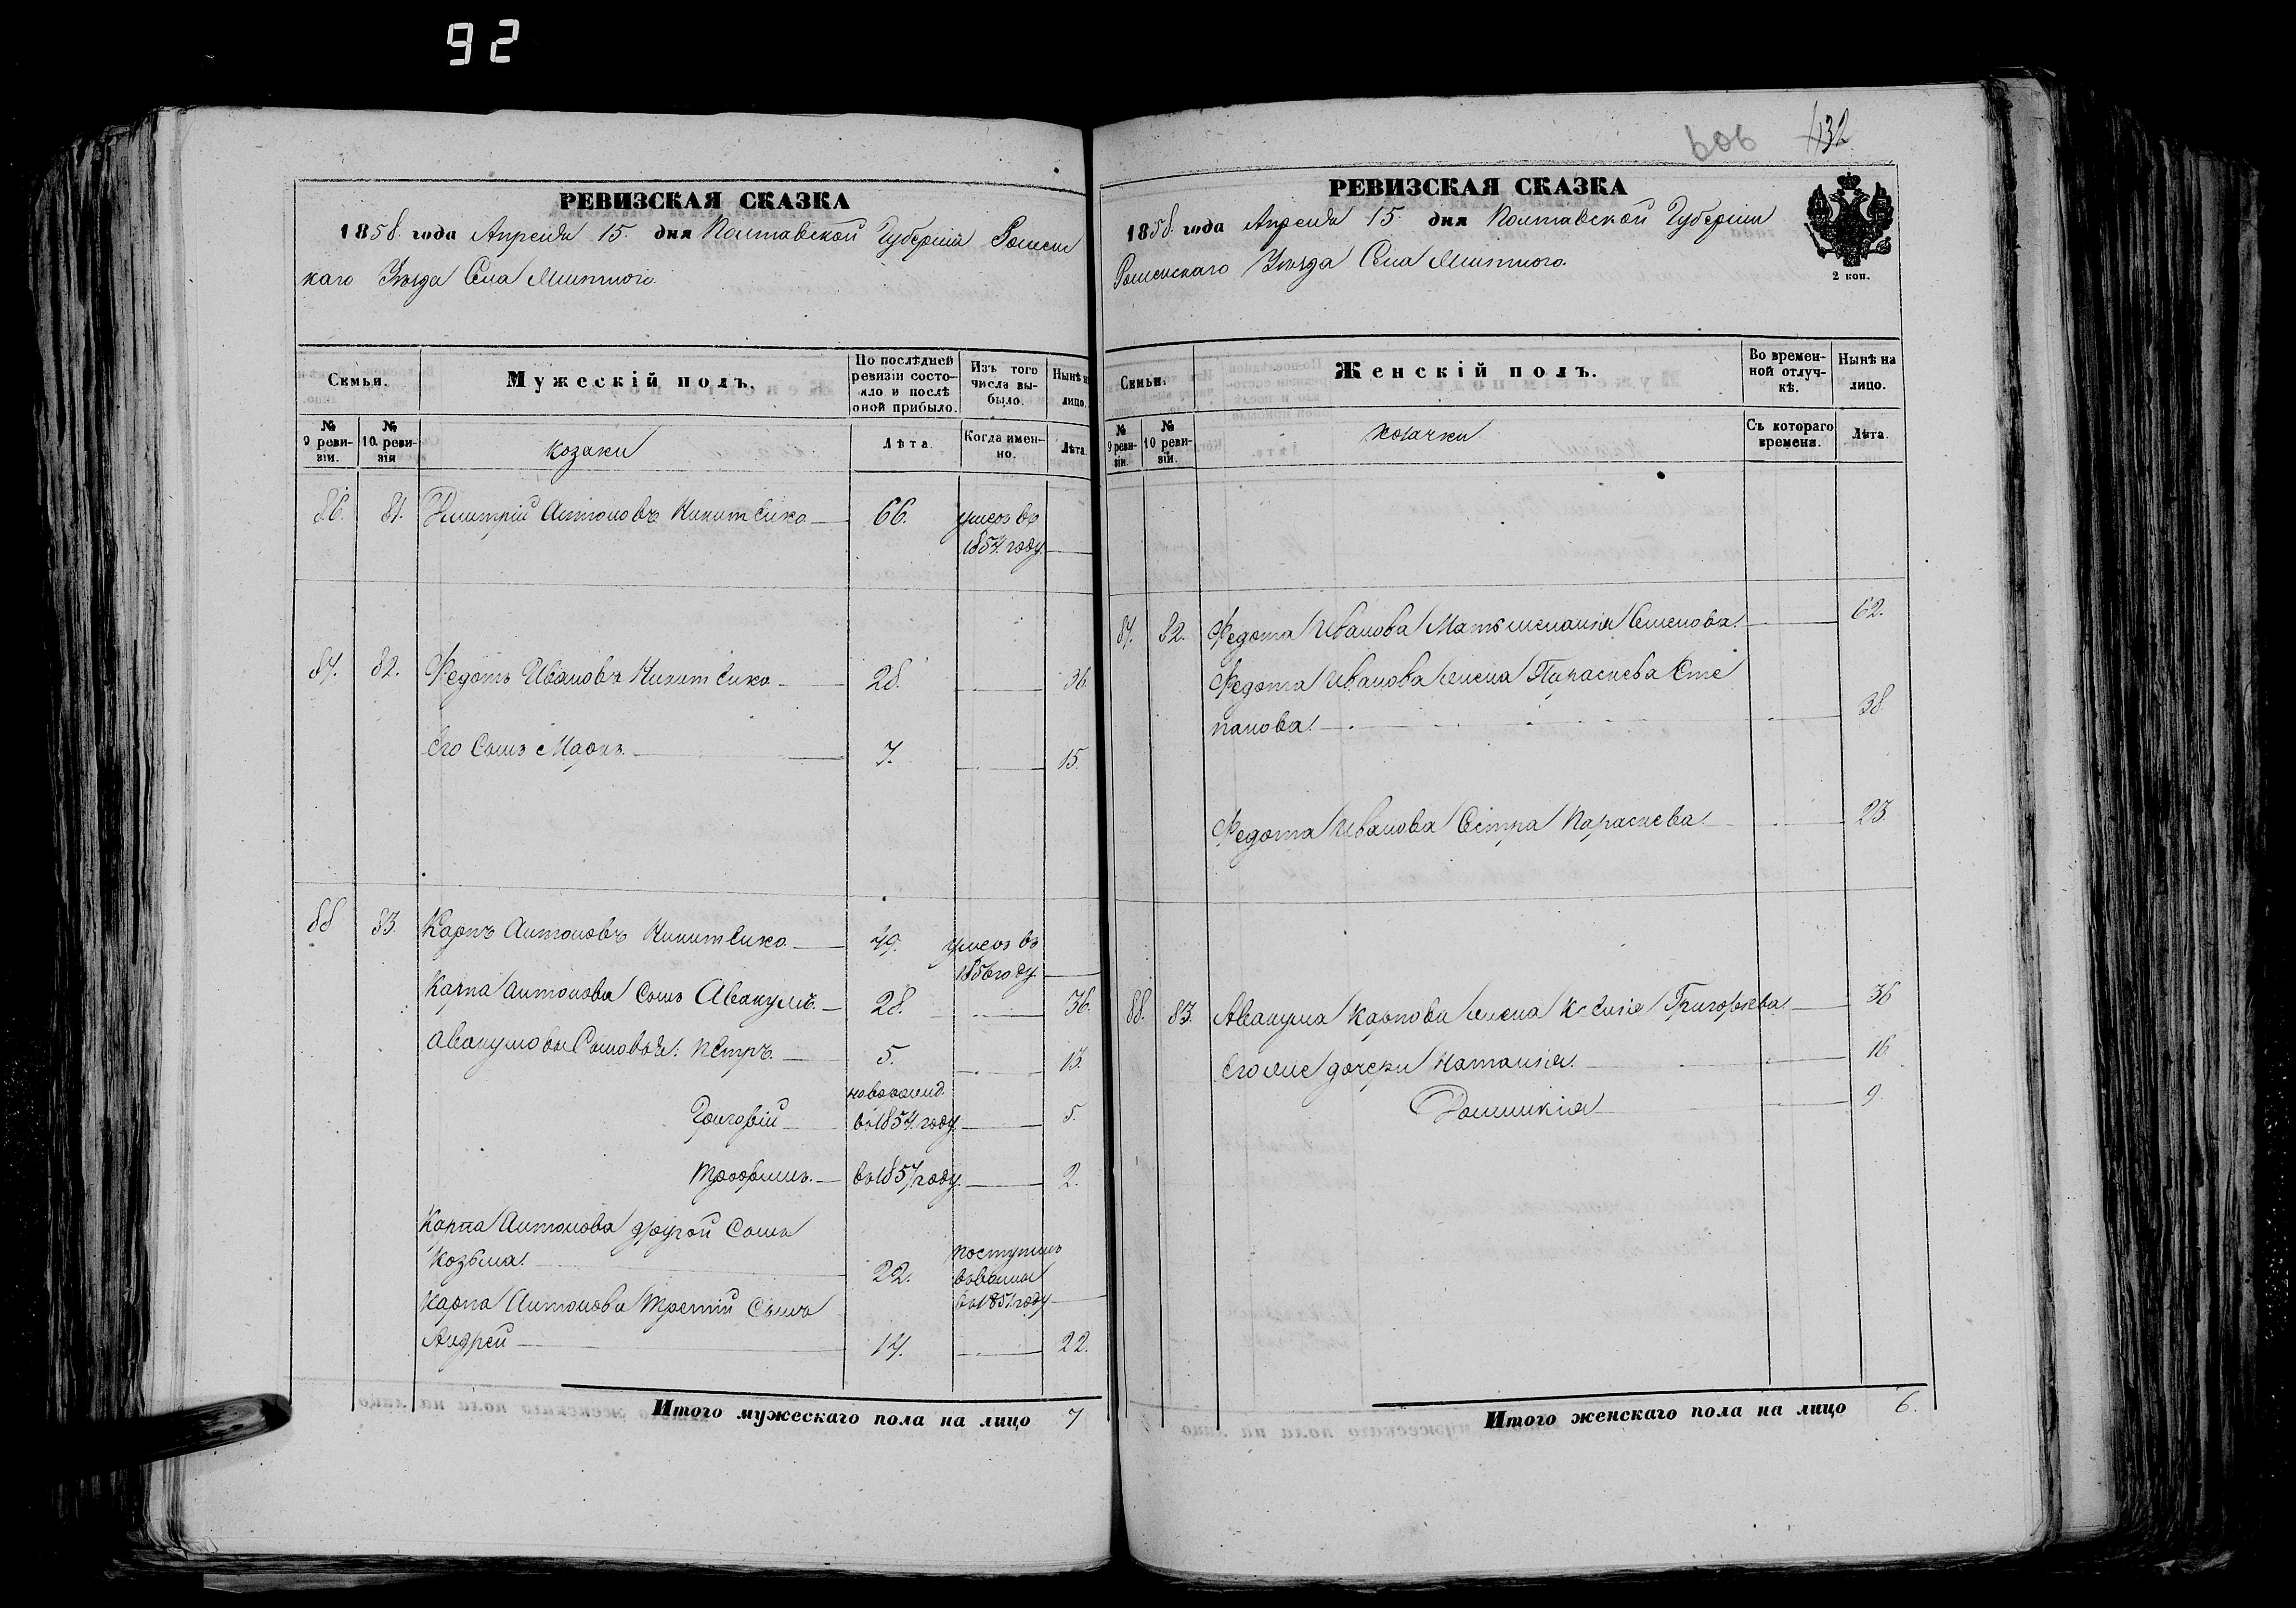 92
РЕВИЗСКАЯ СКАЗКА
1858. года Апреля 15. дня Полтавской Губерніи Роменс
каго Уѣзда Села
Семьи.
Мужескій полъ.
По послѣдней ревизіи состояло и послѣ оной прибыло.
Изъ того числа выбыло.
Нынѣ на лицо.
№ 9 ревизіи.
№ 10 ревизіи
козаки
Лѣта.
Когда именно.
Лѣта.
86. 81. Дмитрій Антоновъ Никитенко 66. умеръ въ
1854. году.
87. 82. Федотъ Ивановъ Никитенко 28. 36.
Его Сынъ Маркъ. 7. 15.
88 83. Карпъ Антоновъ Никитенко 49. умеръ въ
1856 году.
Карпа Антонова Сынъ Авакумъ. 28. 36.
Авакумовы Сыновья: Петръ. 5. 13.
новорожд.
Григорій въ 1854. году. 5.
Трофимъ. въ 1857 году. 2.
Карпа Антонова другой Сынъ
Козьма. 22. поступилъ
въ 1851. году
Карпа Антонова третій Сынъ
Андрей 14. 22.
Итого мужескаго пола на лицо 7
606 132
РЕВИЗСКАЯ СКАЗКА
1858. года Апреля 15. дня Полтавской Губерніи
Роменскаго Уѣзда Села
2 коп.
Семьи.
Женскій полъ.
Во временной отлучкѣ.
Нынѣ на лицо.
№ 9 ревизіи.
№ 10 ревизіи.
козачки
Съ котораго времени.
Лѣта.
87. 82. Федота Иванова Мать Семенова. 62.
Федота Иванова жена Параскева Сте
панова. 38.
Федота Иванова Сестра Параскева. 23.
88. 83. Авакума Карпова жена Ксенія Григорьева 36
Его же дочери Наталія. 16.
Домникія 9.
Итого женскаго пола на лицо 6.